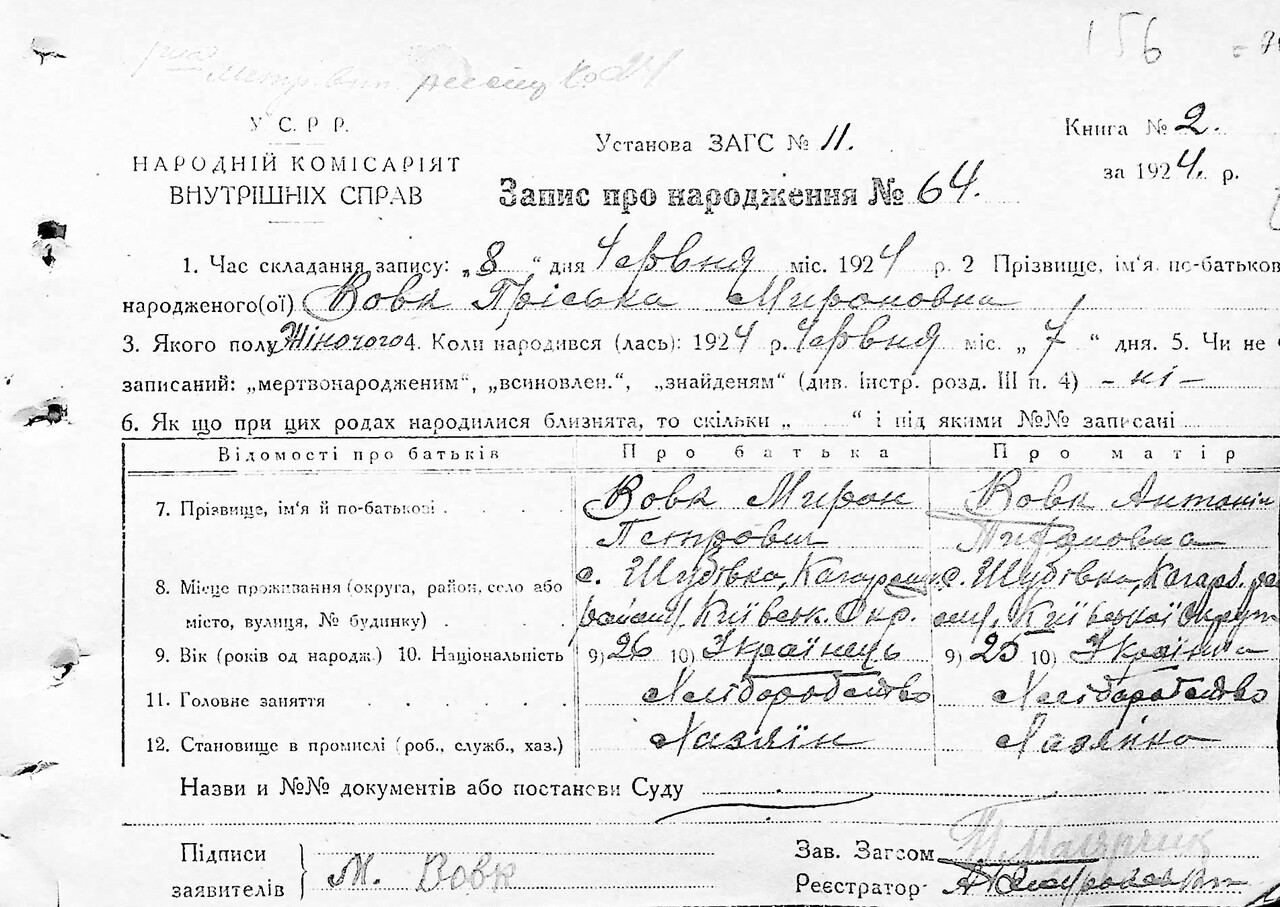 156
У С. Р Р.
НАРОДНІЙ КОМІСАРІЯТ
ВНУТРІШНІХ СПРАВ
Установа ЗАГС № 11.
Книга № 2.
за 1924. р.
Запис про народження № 64.
1. Час складання запису: „8“ дня Червня міс. 1924 р. 2 Прізвище, ім'я, по-батьков
народженого(ої) Вовк Пріська Мироновна
3. Якого полу Жіночого 4. Коли народився (лась): 1924 р. Червня міс. „7“ дня. 5. Чи не
записаний: „мертвонародженим“, „всиновлен.“, „знайденям“ (див. Інстр. розд. III п. 4) - ні -
6. Як що при цих родах народилися близнята, то скільки „ “ і під якими №№ записані
Відомості про батьків Про батька Про матір
7. Прізвище, ім'я й по-батькові Вовк Мирон Вовк Антонін
Петрович
8. Місце проживання (округа, район, село або с. Шубівка, с. Шубівка, Кагарл.
місто, вулиця, № будинку) Київськ. Окр. Київської Округи
9. Вік (років од народж.) 10. Національність 9) 26 10) Українець 9) 25 10) Українка
11. Головне заняття Хліборобство Хліборобство
12. Становище в промислі (роб., служб., хаз.) Хазяїн Хазяйка
Назви и №№ документів або постанови Суду
Підписи
заявителів М. Вовк
Зав. Загсом
Реєстратор